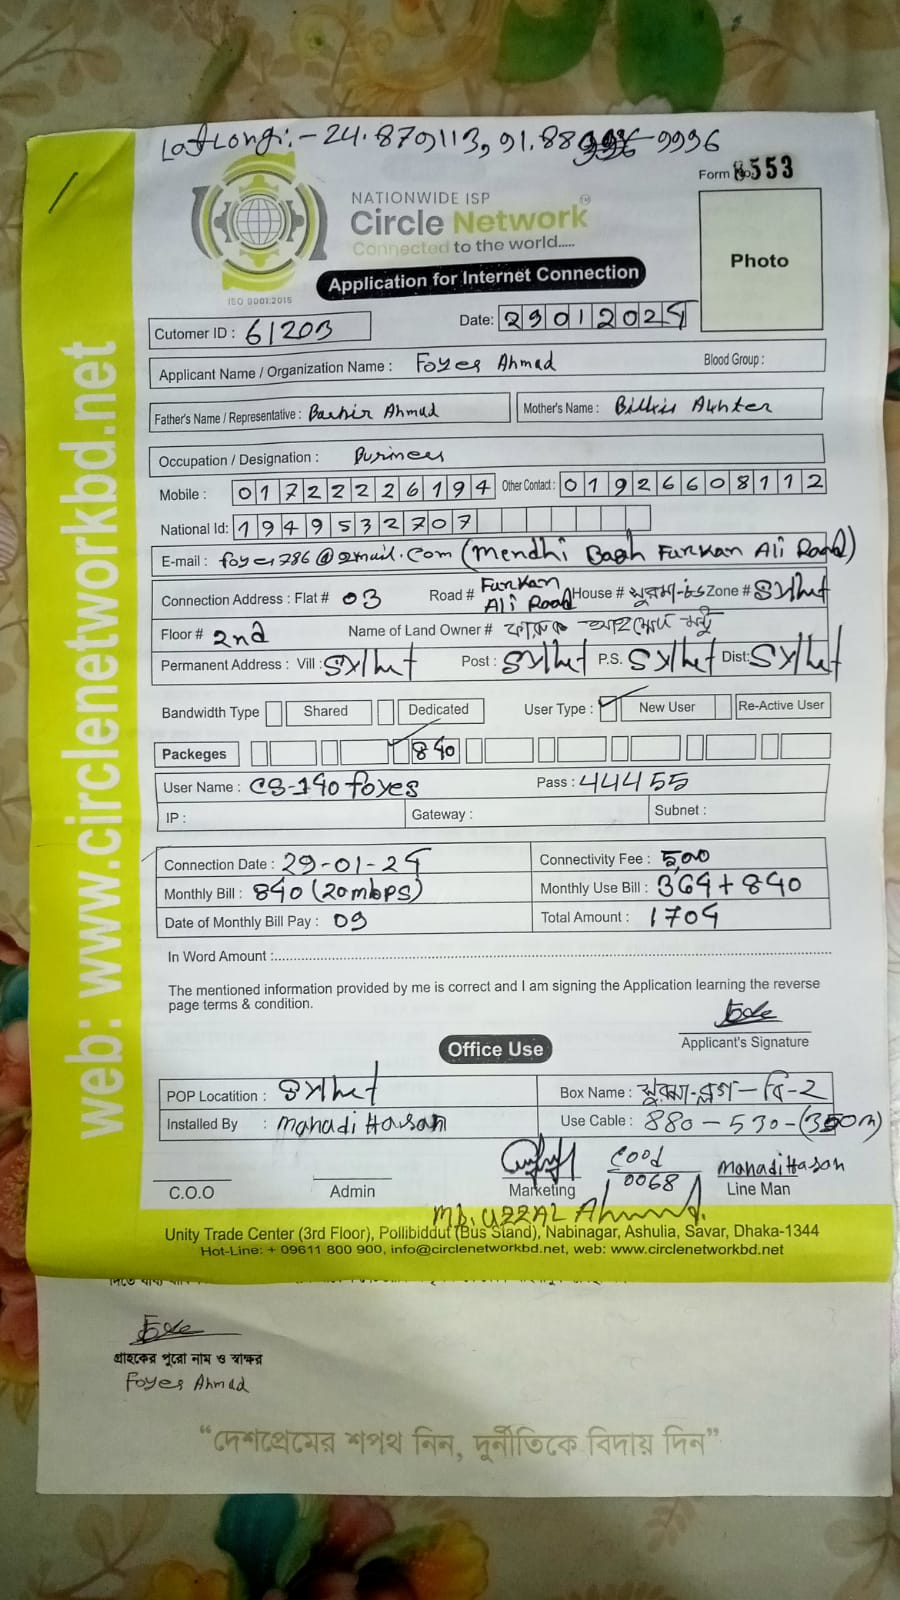 Lat Longi:- 24.879113, 91.88 9996
Form No. 553
NATIONWIDE ISP
Circle Network
Connected to the world.....
ISO 9001:2015
Application for Internet Connection
Photo
Cutomer ID : 61203
Date: 29012024
Applicant Name / Organization Name : Foyes Ahmad Blood Group :
Father's Name / Representative : Bashir Ahmad Mother's Name : Billkis Akhter
Occupation / Designation :
Mobile : 01722226194 Other Contact : 01926608112
National Id: 1949532707
E-mail : foyes786@gmail.com (Mendhi Bagh Furkan Ali Road)
Connection Address : Flat # 03 Road # Furkan Ali Road House # সুরমা-৮৬ Zone # Sylhet
Floor # 2nd Name of Land Owner # ফারুক আহমেদ
Permanent Address : Vill : Sylhet Post : Sylhet P.S. Sylhet Dist: Sylhet
Bandwidth Type Shared Dedicated User Type : New User Re-Active User
Packeges 840
User Name : CS-140 foyes Pass : 444455
IP : Gateway : Subnet :
Connection Date : 29-01-24 Connectivity Fee : 500
Monthly Bill : 840 (20mbps) Monthly Use Bill : 364+840
Date of Monthly Bill Pay : 09 Total Amount : 1704
In Word Amount :
The mentioned information provided by me is correct and I am signing the Application learning the reverse
page terms & condition.
Applicant's Signature
Office Use
POP Locatition : Sylhet Box Name : বি-2
Installed By : Mahadi Hasan Use Cable : 880-530-(350m)
C.O.O Admin Marketing 0068 Mahadi Hasan Line Man
MD. UZZAL Ahmed.
Unity Trade Center (3rd Floor), Pollibiddut (Bus Stand), Nabinagar, Ashulia, Savar, Dhaka-1344
Hot-Line: + 09611 800 900, info@circlenetworkbd.net, web: www.circlenetworkbd.net
web: www.circlenetworkbd.net
গ্রাহকের পুরো নাম ও স্বাক্ষর
Foyes Ahmad
“দেশপ্রেমের শপথ নিন, দুর্নীতিকে বিদায় দিন”